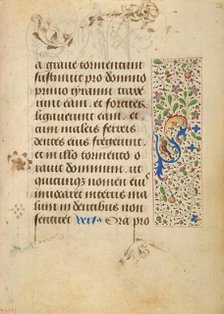 a graue tormentum
sustinuit pro domino
primo tyranni traxe
runt eam. et fortiter
ligauerunt eam. et
cum malleis ferreis
dentes eius fregerunt.
et in illo tormento o
rauit dominum ut
quicunque nomen eius
inuocaret
malum in dentibus non
sentiret Vers. Ora pro